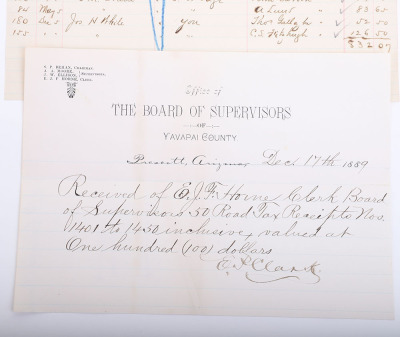 84 May 5
A Lund 83 65
150 Dec 5 Jos N Hhile " you " v Thos 52 50
155 " " " " v C.S. 126 50
532 07
CHAIRMAN
A. J. MOORE,
J. W. ELLISON, SUPERVISORS.
E. J. F. HORNE, CLERK.
Office of
THE BOARD OF SUPERVISORS
OF
YAVAPAI COUNTY.
Prescott, Arizona, Dec. 17th 1889
Received of E.J.F. Horne Clerk Board
of Supervisors 50 Road Tax Receipts Nos.
1401 to 1450 inclusive, valued at
One hundred (100) dollars
E.S. Clark